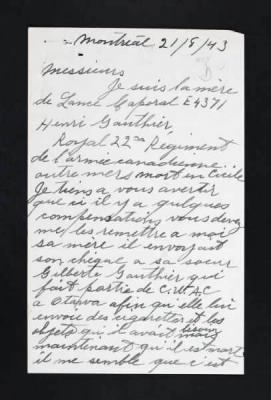 Montréal 21/8/43
Messieurs
Je suis la mère
de Lance Caporal E4371
Henri Gauthier,
Royal 22ème Regiment
de l'armée canadienne..
outre mers mort en Cicile
Je tiens a vous avertir
que ci il y a quelques
compensations vous devez
me les remettre a moi
sa mère il envoyait
son chèque a sa soeur
Gilberte Gauthier qui
fait partie de C.W.A.C
a Otawa afin qu'elle lui
envoie des cigarettes et les
objets qu'il avait besoin mais
maintenant qu'il est mort
il me semble que c'est